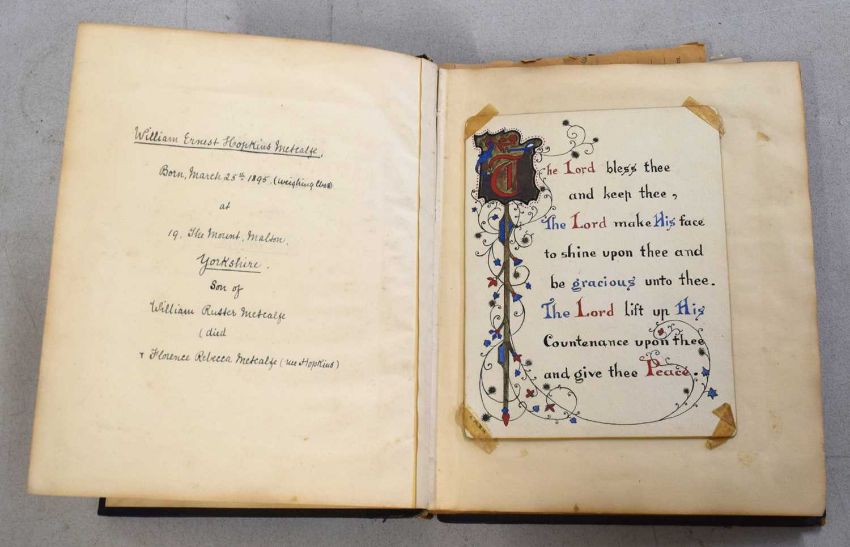 William Ernest Hopkins Metcalfe,
Born, March 25th 1895. (weighing
at
19. The Mount, Malton.
Yorkshire.
Son of
William Ruster Metcalfe
(died
& Florence Rebecca Metcalfe (nee Hopkins)
The Lord bless thee
and keep thee,
The Lord make His face
to shine upon thee and
be gracious unto thee.
The Lord lift up His
Countenance upon thee
and give thee Peace.